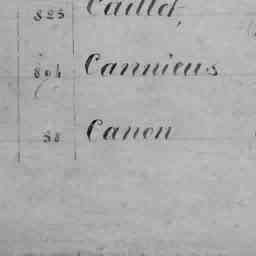 825 Caillet,
894 Cannieus
38 Canon